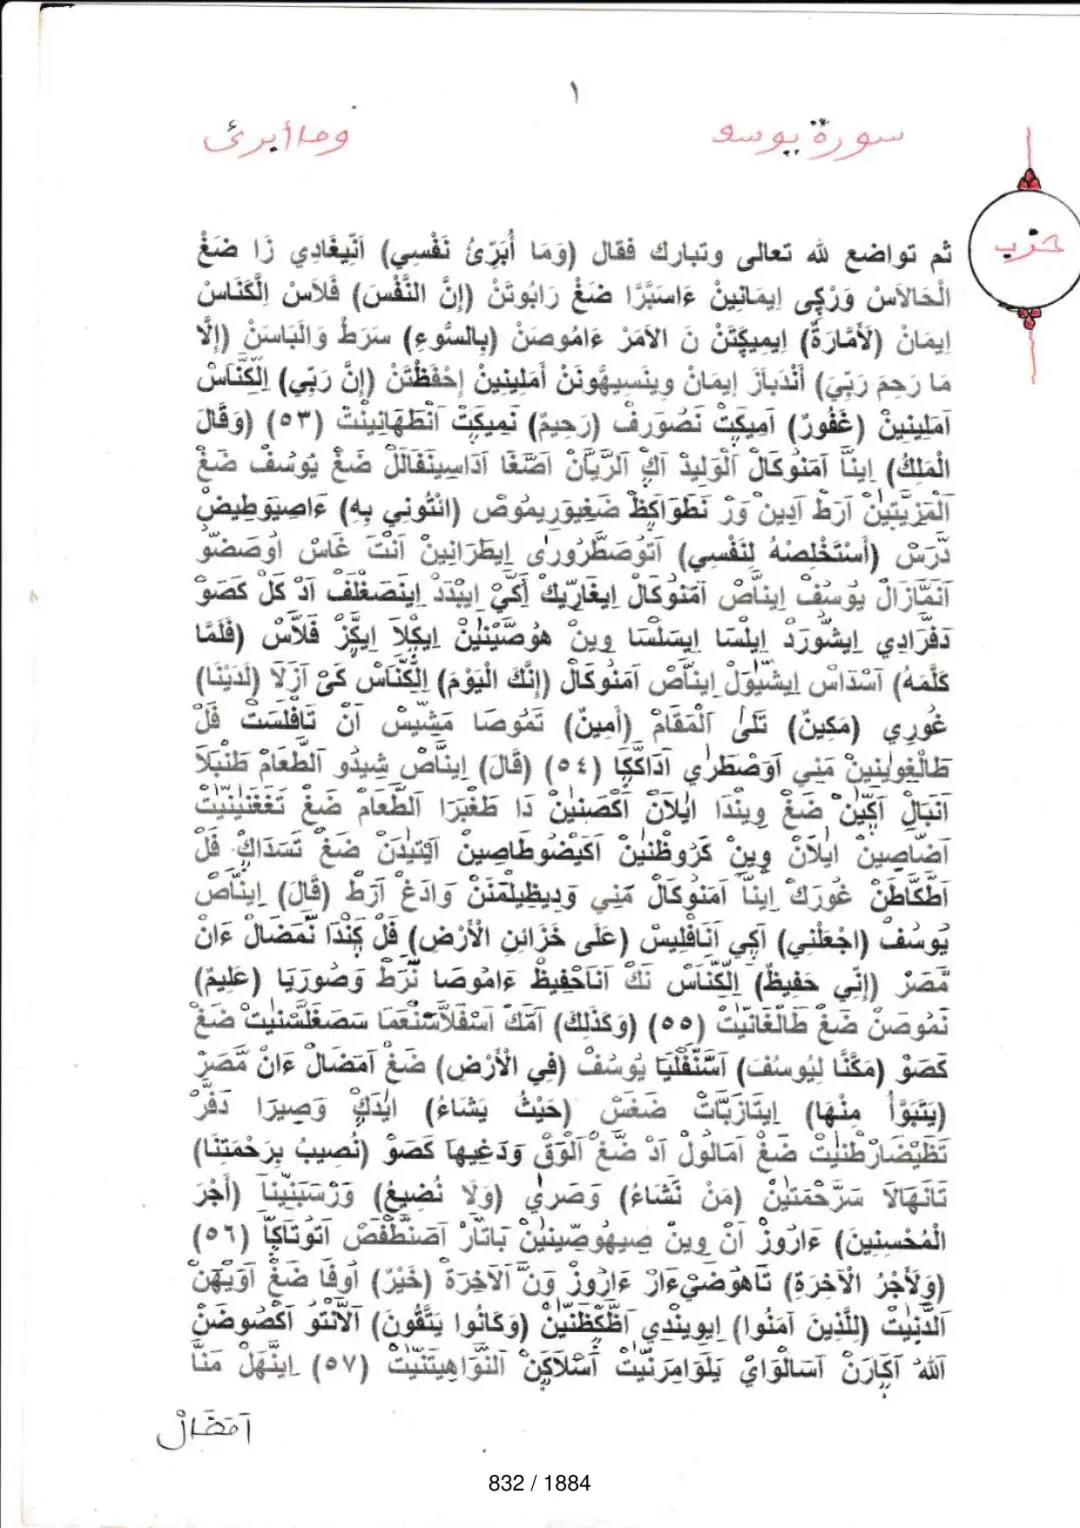 ١
سورة يوسو
وما أبرئ
حزب
ثم تواضع لله تعالى وتبارك فقال (وَمَا أُبَرِّئُ نَفْسِي) اَنِّيغَادِي زَا ضَغْ
الْحَالاَسْ وَرْكِى اِيمَانِينْ ءَاسَبَّرَّا ضَغْ رَابُوتَنْ (إِنَّ النَّفْسَ) فَلاَسْ اِلْكَنَاسْ
اِيمَانْ (لَأَمَّارَةٌ) اِيمِيكِتَنْ نَ الاَمَرْ ءَامُوصَنْ (بِالسُّوءِ) سَرَطْ وَالْبَاسَنْ (إِلَّا
مَا رَحِمَ رَبِّيَ) أَنْدَبَازَ اِيمَانْ وِينَسِيهُونَنْ أَمَلِينِينْ اِحْفَظْتَنْ (إِنَّ رَبِّي) اِلْكَنَّاسْ
اَمَلِينِينْ (غَفُورٌ) اَمِيكِتْ نَصُورَفْ (رَحِيمٌ) نَمِيكِتْ اَنْطَهَانِينْتْ (٥٣) (وَقَالَ
الْمَلِكُ) اِينَّا اَمَنُوكَالْ اَلْوَلِيدْ اَكْ اَلرَّيَّانْ اَصَّغَا اَدَاسِينَقَالَلْ ضَغْ يُوسُفْ ضَغْ
اَلْمَزِيَّتِيِنْ اَرَطْ اَدِينْ وَرْ نَطْوَاكِظْ ضَغِيوَرِيمُوصْ (ائْتُونِي بِهِ) ءَاصِيَوَطِيضْ
دَّرَسْ (أَسْتَخْلِصْهُ لِنَفْسِي) اَتُوصَطْرُورَى اِيطَرَانِينْ اَنْتَ غَاسْ اوُصَضَوُّ
اَنَمَّازَالْ يُوسُفْ اِينَّاصْ اَمَنُوكَالْ اِيغَارِيكْ اَكِّيْ اِيبْدَدْ اِينَصَغْلَفْ اَدْ كَلْ كَصَوْ
دَفْرَادِي اِيشُّورَدْ اِيلْسَا اِيسَلْسَا وِينْ هُوصَيْنِيِنْ اِيكْلاَ اِيكَّزْ فَلاَّسْ (فَلَمَّا
كَلَّمَهُ) اَسْدَاسْ اِيشَّيْوَلْ اِينَّاصْ اَمَنُوكَالْ (إِنَّكَ الْيَوْمَ) اِلْكَنَّاسْ كَىْ اَزَلاَ (لَدَيْنَا)
غُورِي (مَكِينٌ) تَلَىْ اَلْمَقَامْ (أَمِينٌ) تَمُوصَا مَشِّيسْ اَنْ تَافْلَسْتْ فَلْ
طَالْغِوِينِينْ مَنِي اَوْصْطَرْيِ اَدَاكَّكَا (٥٤) (قَالَ) اِينَّاصْ شِيدُو اَلطَّعَامْ طَنْبَلاَ
اَنْبَالْ اَكِّيَنْ ضَغْ وِينْدَا اَيْلاَنْ اَكْصَنِيِنْ دَا طَغْبَرَا اَلطَّعَامْ ضَغْ تَغَغْنِينِيتْ
اَضَّاصِينْ اَيْلاَنْ وِينْ كَرُوظْنِيِنْ اَكَيْضُوطَاصِينْ اَيَّتِيدَنْ ضَغْ تَسَدَاكْ فَلْ
اَطْكَاطَنْ غُورَكْ اِينَّا اَمَنُوكَالْ مَنِي وَدِيظِيلْمَنَنْ وَادَغْ اَرَطْ (قَالَ) اِينَّاصْ
يُوسُفْ (اجْعَلْنِي) اَكِي اَنَافْلِيسْ (عَلَى خَزَائِنِ الْأَرْضِ) فَلْ كَنْدَا نَّمْضَالْ ءَانْ
مَّصَرْ (إِنِّي حَفِيظٌ) اِلْكَنَّاسْ نَكْ اَنَاحْفِيظْ ءَامُوصَا نَّرَطْ وَصُورَيَا (عَلِيمٌ)
نَمُوصَنْ ضَغْ طَالْغَانِيِتْ (٥٥) (وَكَذَلِكَ) اَمَّكْ اَسْفَلاَّسْنَعَمَا سَصَغْلَسْنِيِتْ ضَغْ
كَصَوْ (مَكَّنَّا لِيُوسُفَ) اَسَّنَفْلَيَا يُوسُفْ (فِي الْأَرْضِ) ضَغْ اَمَضَالْ ءَانْ مَّصَرْ
(يَتَبَوَّأُ مِنْهَا) اِيتَازَبَّاتْ ضَغَسْ (حَيْثُ يَشَاءُ) اَيْدَكْ وَصِيرَا دَفَّرْ
تَظِيْضَارْطَنِيِتْ ضَغْ اَمَالُولْ اَدْ ضَغْ اَلْوَقْ وَدَغِيهَا كَصَوْ (نُصِيبُ بِرَحْمَتِنَا)
تَانَهَالاَ سَرَّحْمَتِيِنْ (مَنْ نَشَاءُ) وَصَرْيِ (وَلَا نُضِيعُ) وَرْسَبَنِّينَا (أَجْرَ
الْمُحْسِنِينَ) ءَارُوزْ اَنْ وِينْ صِيهُوصِّينِيِنْ بَاتَارْ اَصَنْطَفَصْ اَتُوتَاكَا (٥٦)
(وَلَأَجْرُ الْآخِرَةِ) تَاهُوضَيْءَارْ ءَارُوزْ وَنَّ اَلاَخِرَةْ (خَيْرٌ) اُوفَا ضَغْ اَوَيَّهَنْ
اَلدَّنِيِتْ (لِلَّذِينَ آمَنُوا) اِيوِينْدِي اَظَّكْظَنِّيِنْ (وَكَانُوا يَتَّقُونَ) اَلاَّنْتُوُ اَكْصُوضَنْ
اَللهْ اَكَارَنْ اَسَالْوَايْ يَلَوَامِرَنِّيِتْ أَسْلاَكِنْ اَلنَّوَاهِيتَنِيِتْ (٥٧) اِينَّهَلْ مَنَّا
اَمَضَالْ
832 / 1884